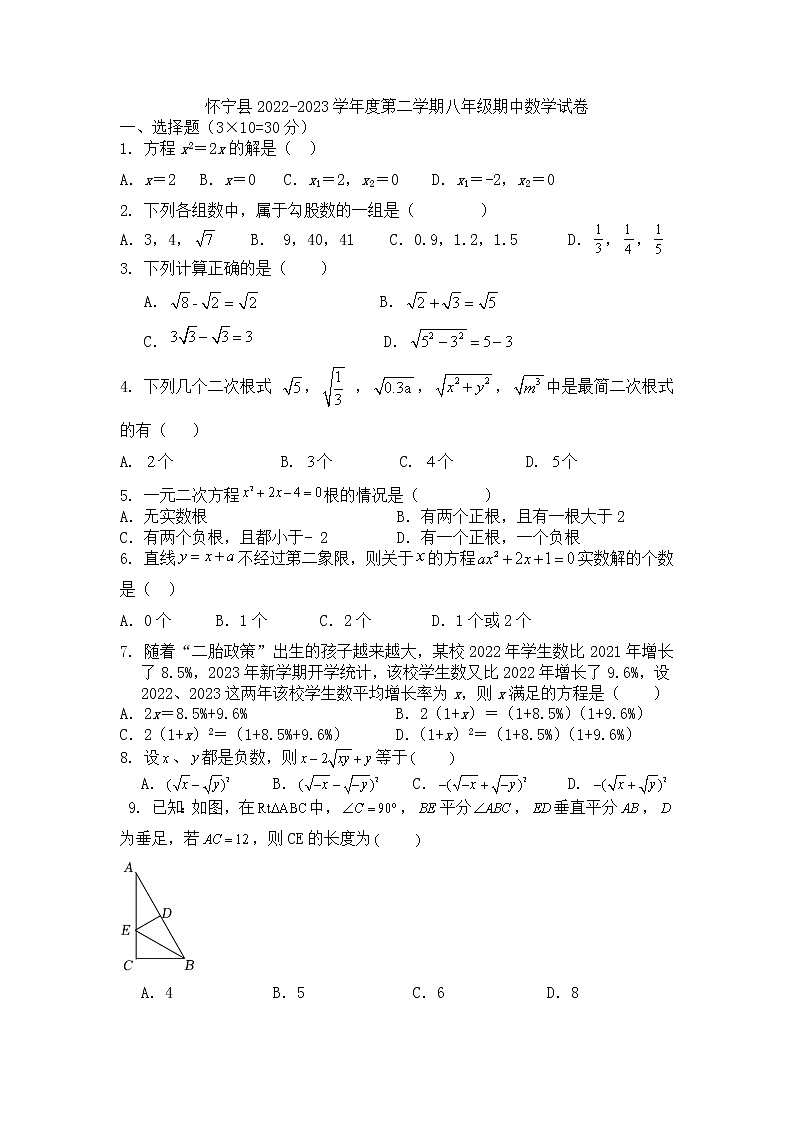 怀宁县 2022-2023 学年度第二学期八年级期中数学试卷
一、选择题（3×10=30 分）
1. 方程 x²＝2x 的解是（  ）
A. x＝2  B. x＝0  C. x₁＝2, x₂＝0  D. x₁＝-2, x₂＝0
2. 下列各组数中，属于勾股数的一组是（    ）
A. 3, 4, √7  B. 9, 40, 41  C. 0.9, 1.2, 1.5  D. 1/3, 1/4, 1/5
3. 下列计算正确的是（    ）
A. √8 - √2 = √2  B. √2 + √3 = √5
C. 3√3 − √3 = 3  D. √(5² − 3²) = 5 − 3
4. 下列几个二次根式 √5, √(1/3), √(0.3a), √(x² + y²), √(m³) 中是最简二次根式
的有（  ）
A. 2个  B. 3个  C. 4个  D. 5个
5. 一元二次方程 x² + 2x − 4 = 0 根的情况是（    ）
A. 无实数根  B. 有两个正根，且有一根大于 2
C. 有两个负根，且都小于- 2  D. 有一个正根，一个负根
6. 直线 y = x + a 不经过第二象限，则关于 x 的方程 ax² + 2x + 1 = 0 实数解的个数
是（  ）
A. 0个  B. 1个  C. 2个  D. 1个或2个
7. 随着“二胎政策”出生的孩子越来越大，某校 2022 年学生数比 2021 年增长
了 8.5%, 2023 年新学期开学统计，该校学生数又比 2022 年增长了 9.6%, 设
2022、2023 这两年该校学生数平均增长率为 x, 则 x 满足的方程是（    ）
A. 2x＝8.5%+9.6%  B. 2（1+x）＝（1+8.5%）（1+9.6%）
C. 2（1+x）²＝（1+8.5%+9.6%）  D.（1+x）²＝（1+8.5%）（1+9.6%）
8. 设 x、y 都是负数，则 x − 2√(xy) + y 等于(    )
A. (√x − √y)²  B. (√(−x) − √(−y))²  C. −(√(−x) + √(−y))²  D. −(√x + √y)²
9. 已知：如图，在 RtΔABC 中，∠C = 90°, BE 平分 ∠ABC, ED 垂直平分 AB, D
为垂足，若 AC = 12, 则 CE 的长度为(    )
A
D
E
C B
A. 4  B. 5  C. 6  D. 8